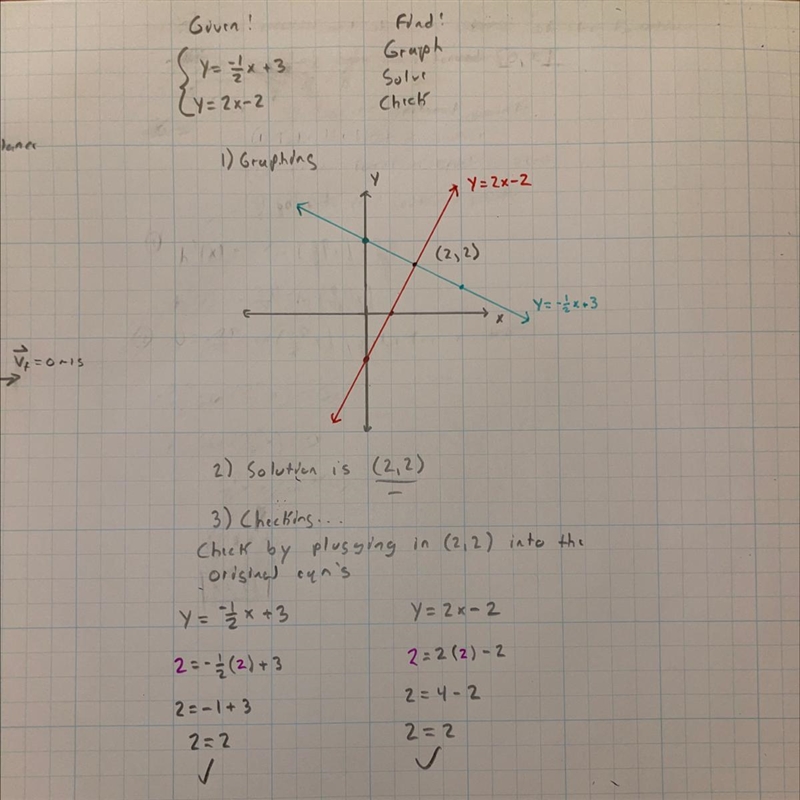 Given!
Find!
{ y = -1/2 x + 3
y = 2x - 2
Graph
Solve
Check
1) Graphing
y
y = 2x - 2
(2,2)
y = -1/2 x + 3
x
V⃗f = 0 m/s
2) Solution is (2,2)
3) Checking...
Check by plugging in (2,2) into the
original eqn's
y = -1/2 x + 3
y = 2x - 2
2 = -1/2 (2) + 3
2 = 2(2) - 2
2 = -1 + 3
2 = 4 - 2
2 = 2
2 = 2
✓
✓